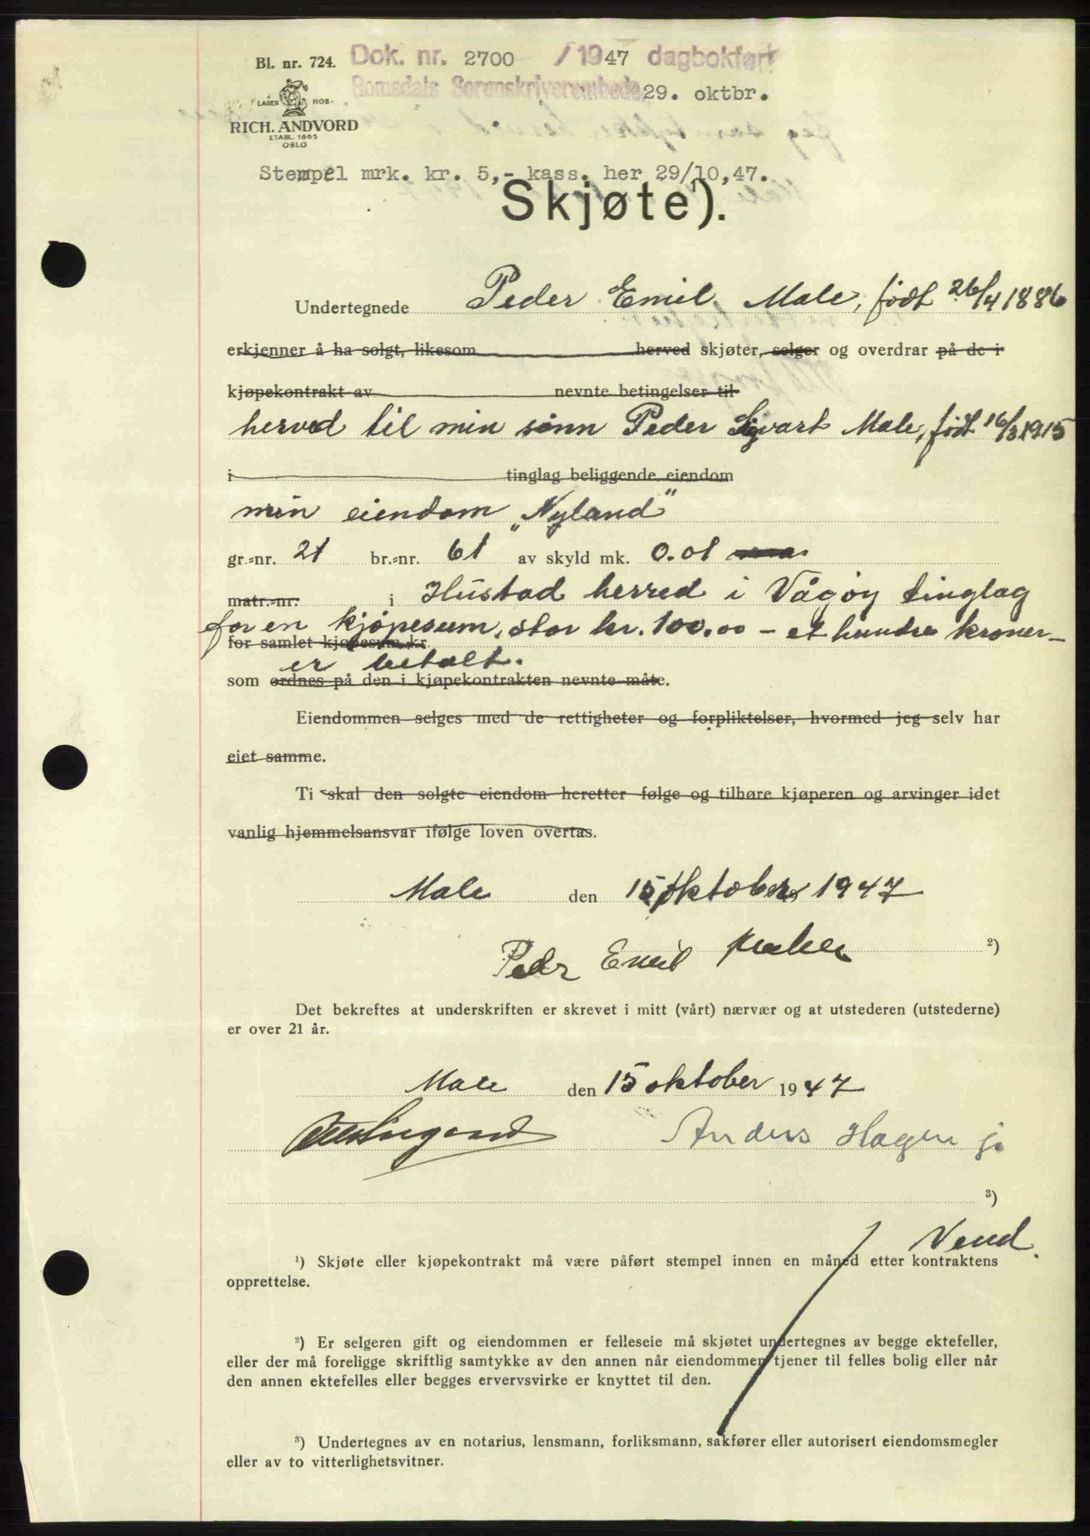 Bl. nr. 724. Dok. nr. 2700 /1947 dagbokført
Romsdals Sorenskriverembede 29. oktbr.
LAGER HOS
RICH. ANDVORD
ETABL. 1865
OSLO
Stempel mrk. kr. 5,- kass. her 29/10,47.
Skjøte¹).
Undertegnede Peder Emil Male, født 26/4 1886
erkjenner å ha solgt, likesom herved skjøter, selger og overdrar på de i
kjøpekontrakt av nevnte betingelser til
herved til min sønn Peder Sigvart Male, født 16/3 1915
i tinglag beliggende eiendom
min eiendom „Nyland"
gr.-nr. 21 br.-nr. 61 av skyld mk. 0.01
matr.-nr. i Hustad herred i Vågøy tinglag
for en kjøpesum, stor kr. 100.00 – et hundre kroner –
for samlet kjøpesum kr.
er betalt.
som ordnes på den i kjøpekontrakten nevnte måte.
Eiendommen selges med de rettigheter og forpliktelser, hvormed jeg selv har
eiet samme.
Ti skal den solgte eiendom heretter følge og tilhøre kjøperen og arvinger idet
vanlig hjemmelsansvar ifølge loven overtas.
Male den 15 oktober 1947
Peder Emil Male
²)
Det bekreftes at underskriften er skrevet i mitt (vårt) nærvær og at utstederen (utstederne)
er over 21 år.
Male den 15 oktober 1947
Anders Hagen jr
³)
Vend.
¹) Skjøte eller kjøpekontrakt må være påført stempel innen en måned etter kontraktens
opprettelse.
²) Er selgeren gift og eiendommen er felleseie må skjøtet undertegnes av begge ektefeller,
eller der må foreligge skriftlig samtykke av den annen når eiendommen tjener til felles bolig eller når
den annen ektefelles eller begges ervervsvirke er knyttet til den.
³) Undertegnes av en notarius, lensmann, forliksmann, sakfører eller autorisert eiendomsmegler
eller av to vitterlighetsvitner.